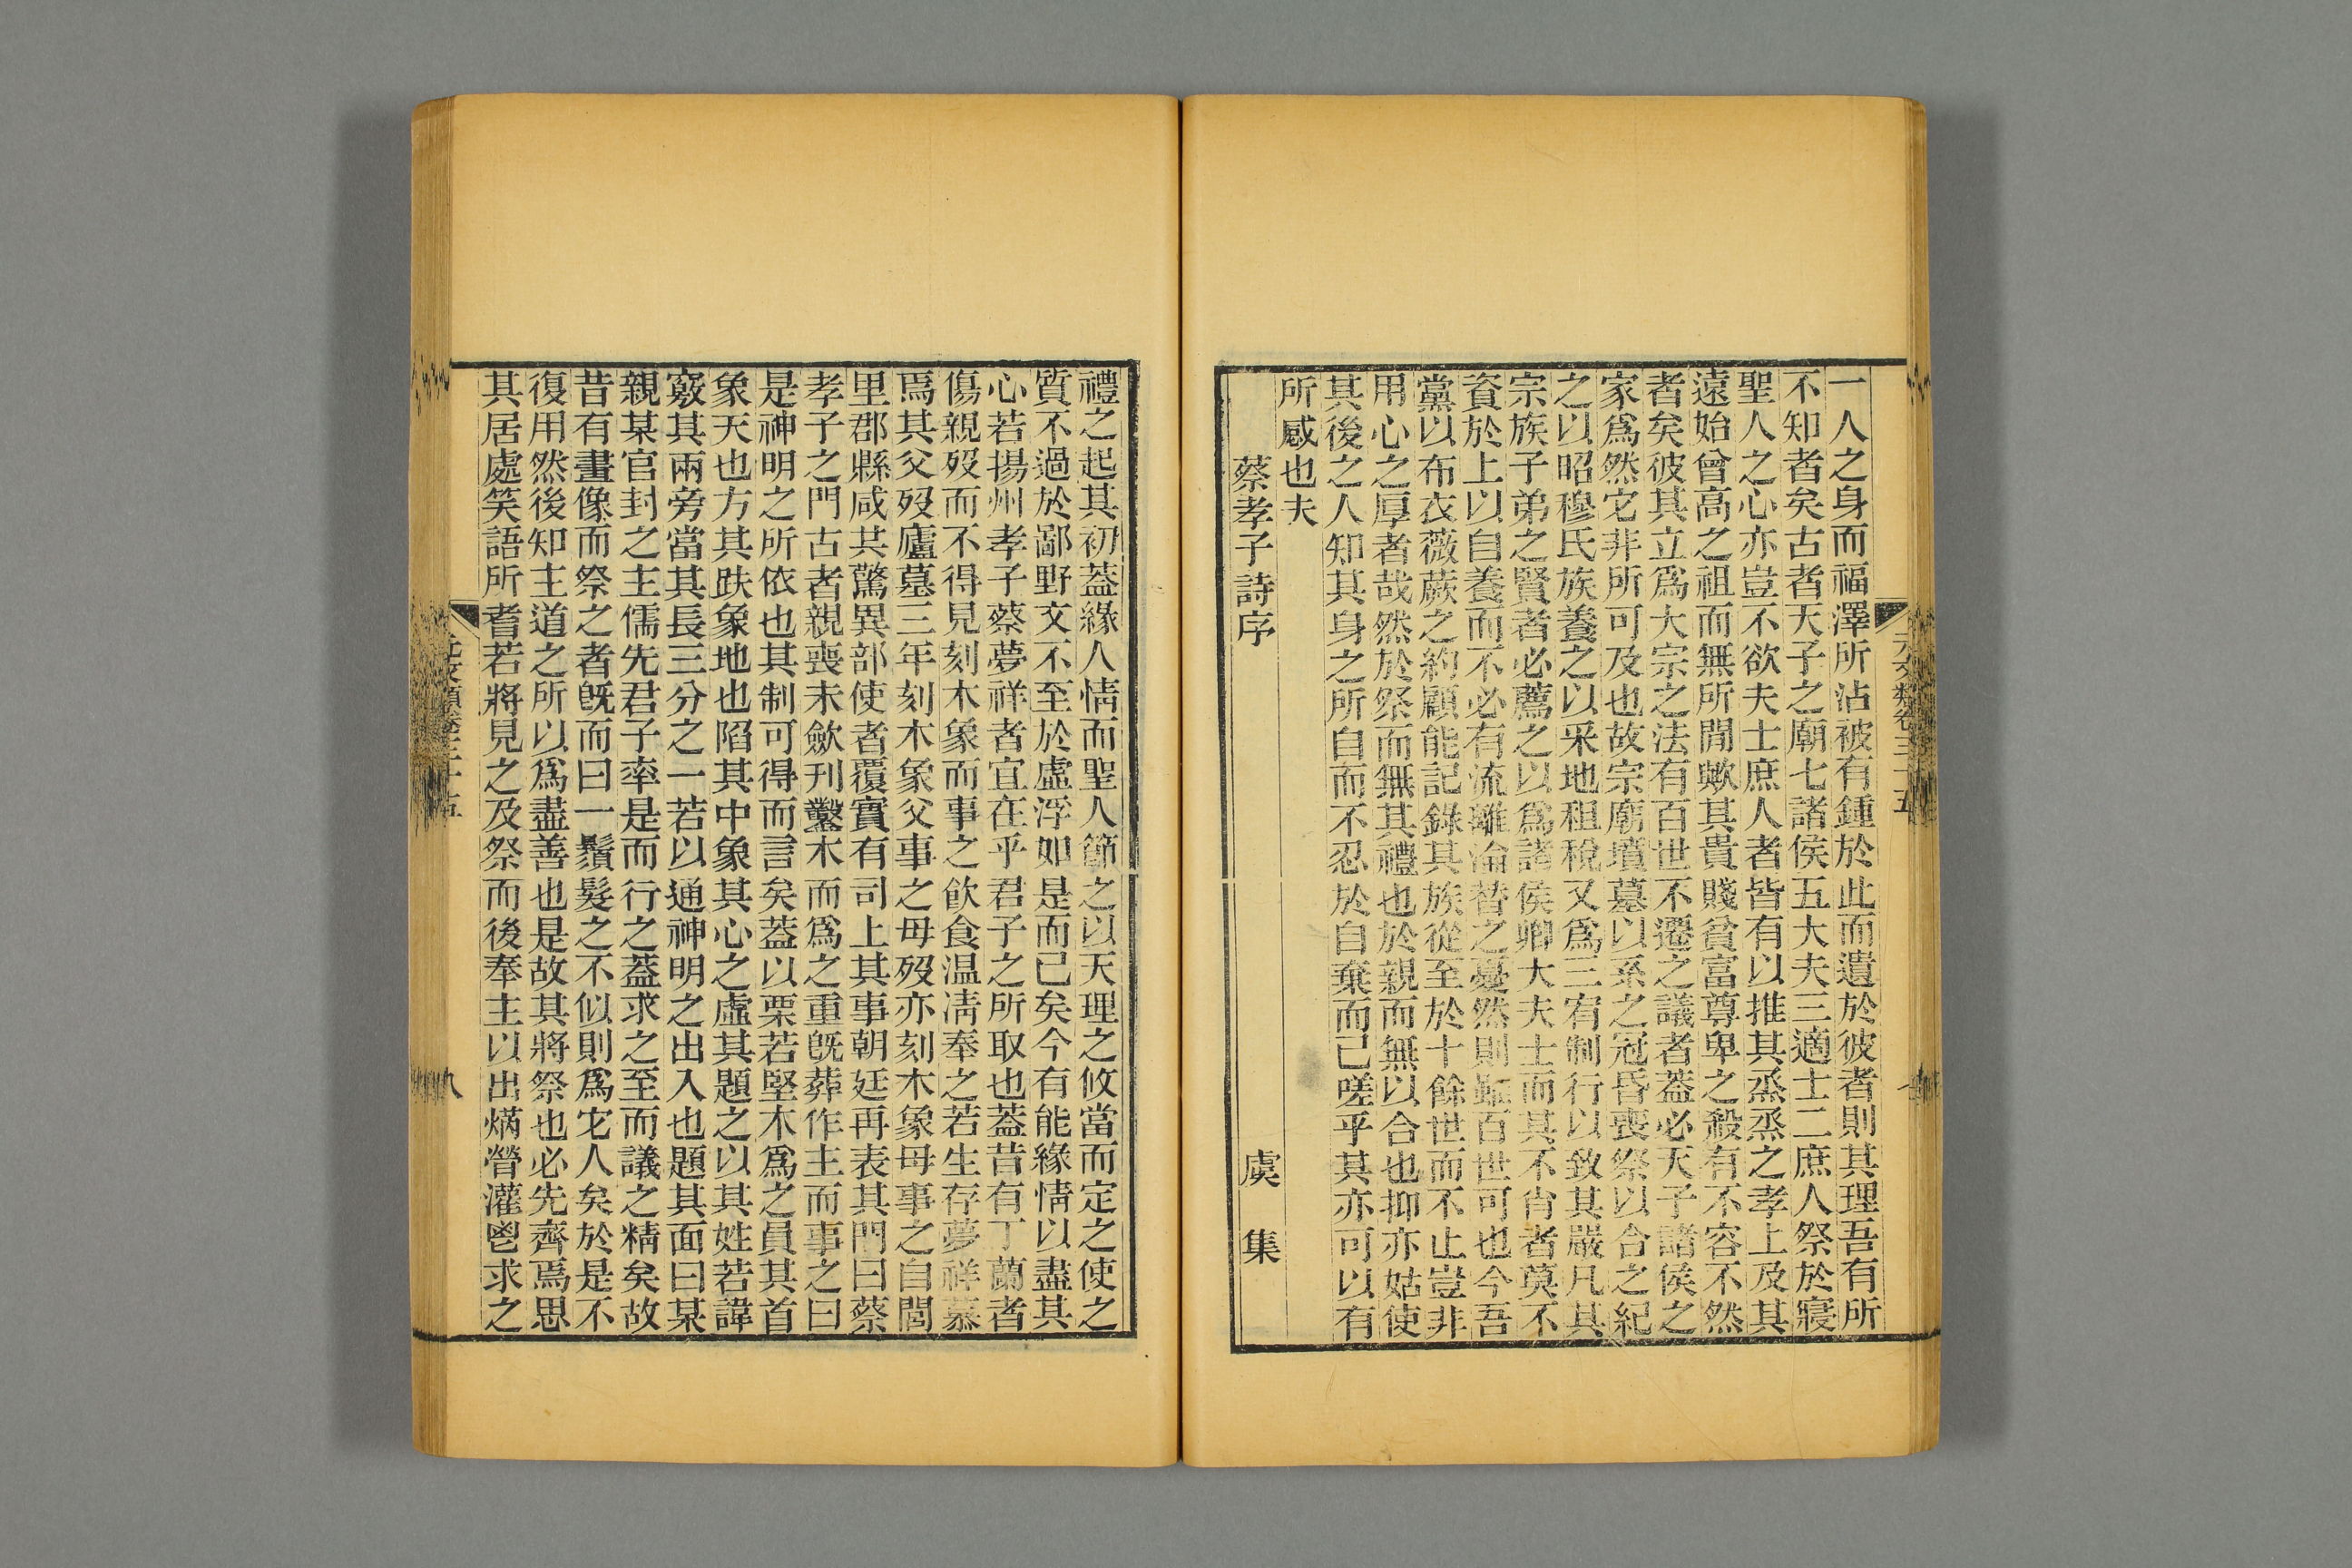 一人之身而福澤所沾被有鍾於此而遺於彼者則其理吾有所
不知者矣古者天子之廟七諸侯五大夫三適士二庶人祭於寢
聖人之心亦豈不欲夫士庶人者皆有以推其烝烝之孝上及其
遠始曾高之祖而無所閒歟其貴賤貧富尊卑之殺有不容不然
者矣彼其立爲大宗之法有百世不遷之議者蓋必天子諸侯之
家爲然它非所可及也故宗廟墳墓以系之冠昏喪祭以合之紀
之以昭穆氏族養之以采地租稅又爲三宥制行以致其嚴凡其
宗族子弟之賢者必薦之以爲諸侯卿大夫士而其不肖者莫不
資於上以自養而不必有流離淪替之憂然則雖百世可也今吾
黨以布衣薇蕨之約顧能記錄其族從至於十餘世而不止豈非
用心之厚者哉然於祭而無其禮也於親而無以合也抑亦姑使
其後之人知其身之所自而不忍於自棄而已嗟乎其亦可以有
所感也夫
蔡孝子詩序 虞集
禮之起其初蓋緣人情而聖人節之以天理之攸當而定之使之
質不過於鄙野文不至於虛浮如是而已矣今有能緣情以盡其
心若揚州孝子蔡夢祥者宜在乎君子之所取也蓋昔有丁蘭者
傷親歿而不得見刻木象而事之飮食温凊奉之若生存夢祥慕
焉其父歿廬墓三年刻木象父事之母歿亦刻木象母事之自閭
里郡縣咸共驚異部使者覆實有司上其事朝廷再表其門曰蔡
孝子之門古者親喪未歛刊鑿木而爲之重旣葬作主而事之曰
是神明之所依也其制可得而言矣蓋以栗若堅木爲之員其首
象天也方其趺象地也陷其中象其心之虛其題之以其姓若諱
竅其兩旁當其長三分之一若以通神明之出入也題其面曰某
親某官封之主儒先君子率是而行之蓋求之至而議之精矣故
昔有畫像而祭之者旣而曰一鬚髮之不似則爲它人矣於是不
復用然後知主道之所以爲盡善也是故其將祭也必先齊焉思
其居處笑語所耆若將見之及祭而後奉主以出焫膋灌鬯求之